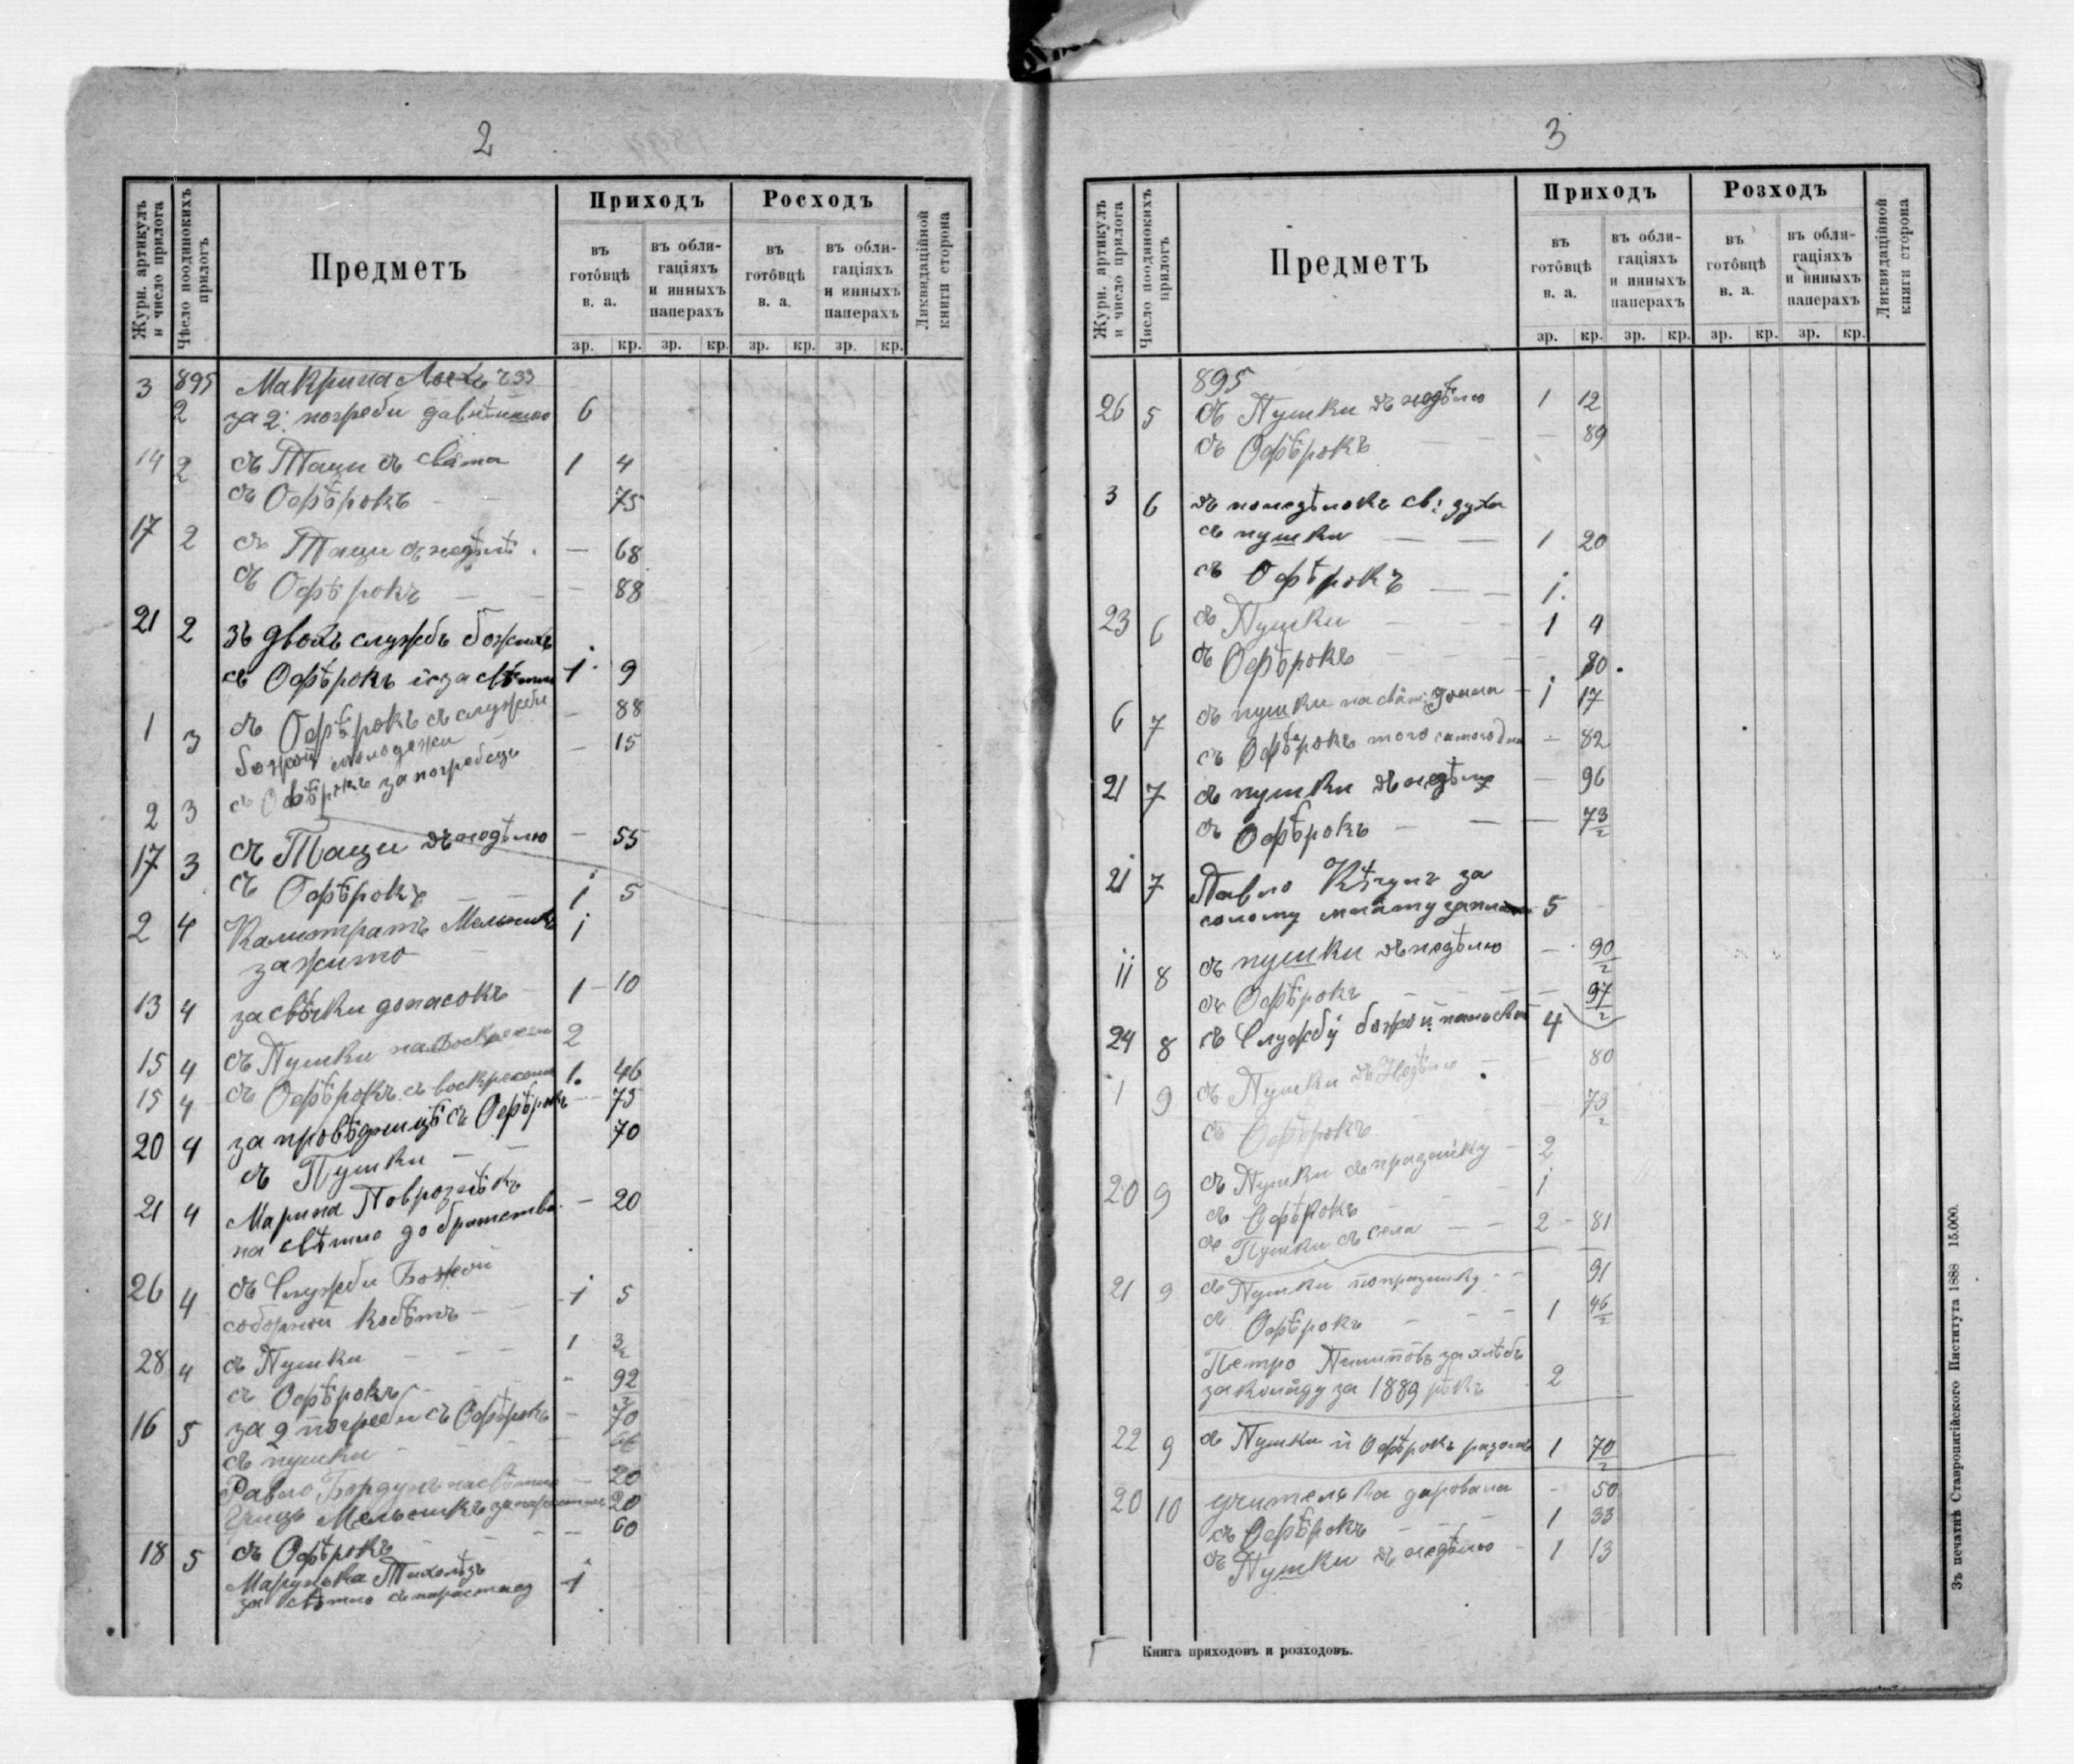 2
Журн. артикулъ и число прилога
Число поодинокихъ прилогъ
Предметъ
Приходъ
Росходъ
въ готôвцѣ в. а.
въ облигаціяхъ и инныхъ паперахъ
въ готôвцѣ в. а.
въ облигаціяхъ и инныхъ паперахъ
Ликвидаційной книги сторона
зр. кр. зр. кр. зр. кр. зр. кр.
3 895 Макрина
2 за 2 погреби 6
14 2 съ Таци съ свята 1 4
съ Офѣрокъ 75
17 2 съ Таци въ неделѣ — 68
съ Офѣрокъ — — 88
21 2 зъ двохъ службъ божихъ
съ Офѣрокъ 1 9
1 3 съ Офѣрокъ съ службы — 88
божой — 15
2 3 съ Офѣрокъ за погребець
17 3 съ Таци въ неделю — 55
съ Офѣрокъ — — 1 5
2 4 Калистратъ Мельникъ 1
за жито
13 4 за свѣчки до пасокъ 1 — 10
15 4 съ Пушки на 2
15 4 съ Офѣрокъ съ воскресенія 1. 46
20 4 за съ Офѣрокъ — 75
съ Пушки — — 70
21 4 Марина Поврознѣкъ
на свѣтло до братства — 20
26 4 съ Службы Божой
соборной — — 1 5
28 4 съ Пушки — — — 1 3/2
съ Офѣрокъ 92/2
16 5 за 2 погреби съ Офѣрокъ — 70
съ пушки — —
Павло Бордунъ на свѣтло — 20
Грицъ Мельникъ за 20
18 5 съ Офѣрокъ — — 60
Марунька
за свѣтло съ парастасъ 1
3
Журн. артикулъ и число прилога
Число поодинокихъ прилогъ
Предметъ
Приходъ
Розходъ
въ готôвцѣ в. а.
въ облигаціяхъ и инныхъ паперахъ
въ готôвцѣ в. а.
въ облигаціяхъ и инныхъ паперахъ
Ликвидаційной книги сторона
зр. кр. зр. кр. зр. кр. зр. кр.
895
26 5 съ Пушки въ неделю 1 12
съ Офѣрокъ — — — 89
3 6 въ понедѣлокъ св: духа
съ пушки — — 1 20
съ Офѣрокъ — — 1.
23 6 съ Пушки — — — 1 4
съ Офѣрокъ — — — 80.
6 7 съ пушки на свят: — 1 17
съ Офѣрокъ того самого дня — 82
21 7 съ пушки въ неделю — 96
съ Офѣрокъ — — — 73/2
21 7 Павло за
солому 5 —
11 8 съ пушки въ неделю — 90/2
съ Офѣрокъ — — — 97/2
24 8 съ Службы божой 4
1 9 съ Пушки въ Неделю — — 80
съ Офѣрокъ — 73/2
20 9 съ Пушки съ празнику — 2
съ Офѣрокъ — — — 1
съ Пушки съ села — — 2 — 81
21 9 съ Пушки по празнику — — 91
съ Офѣрокъ — — — 1 46/2
Петро за хлѣбъ
за коляду за 1889 рокъ 2
22 9 съ Пушки и Офѣрокъ разомъ 1 70/2
20 10 учителька даровала — 50
съ Офѣрокъ — — — 1 33
съ Пушки въ неделю — 1 13
Книга приходовъ и розходовъ.
Зъ печатнѣ Ставропигійского Института 1888 15.000.